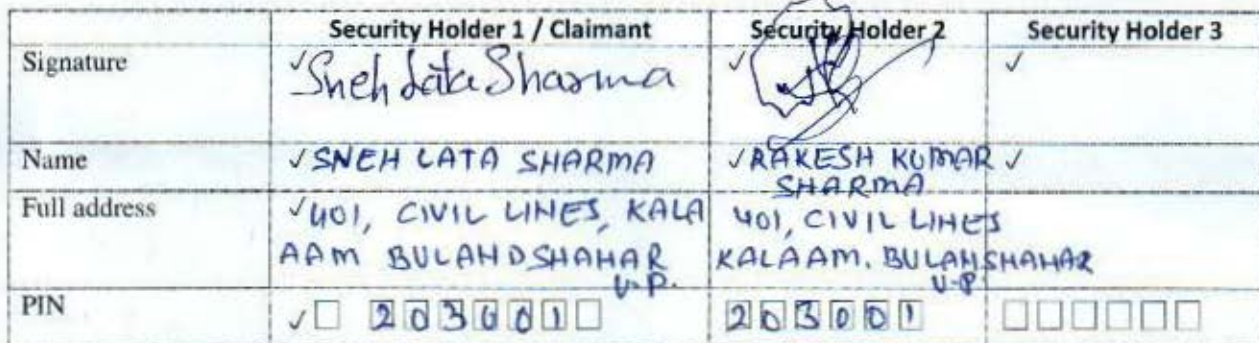 Security Holder 1 / Claimant Security Holder 2 Security Holder 3
Signature ✓Sneh Lata Sharma ✓ ✓
Name ✓SNEH LATA SHARMA ✓RAKESH KUMAR ✓
SHARMA
Full address ✓401, CIVIL LINES, KALA 401, CIVIL LINES
AAM BULANDSHAHAR KALAAM. BULANSHAHAR
U.P. U.P
PIN ✓ 203001 203001